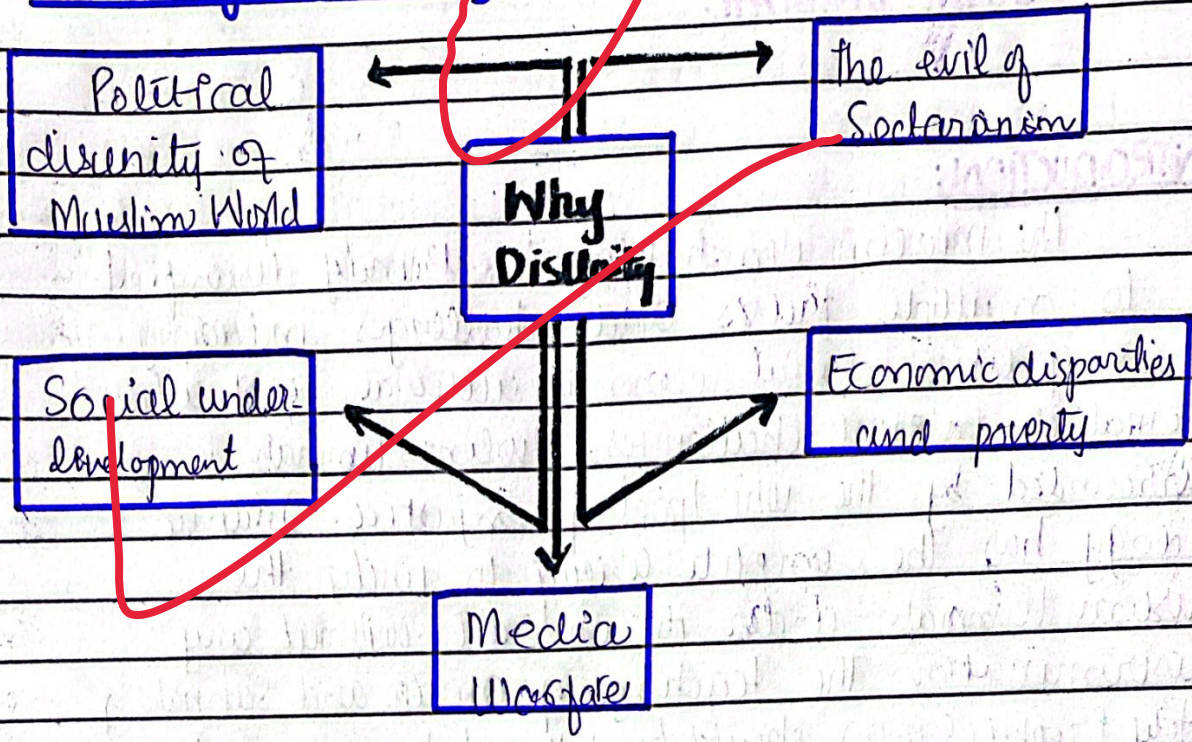 Political
disunity of
Muslim World
The evil of
Sectarianism
Why
Disunity
Social under-
development
Economic disparities
and poverty
Media
Warfare